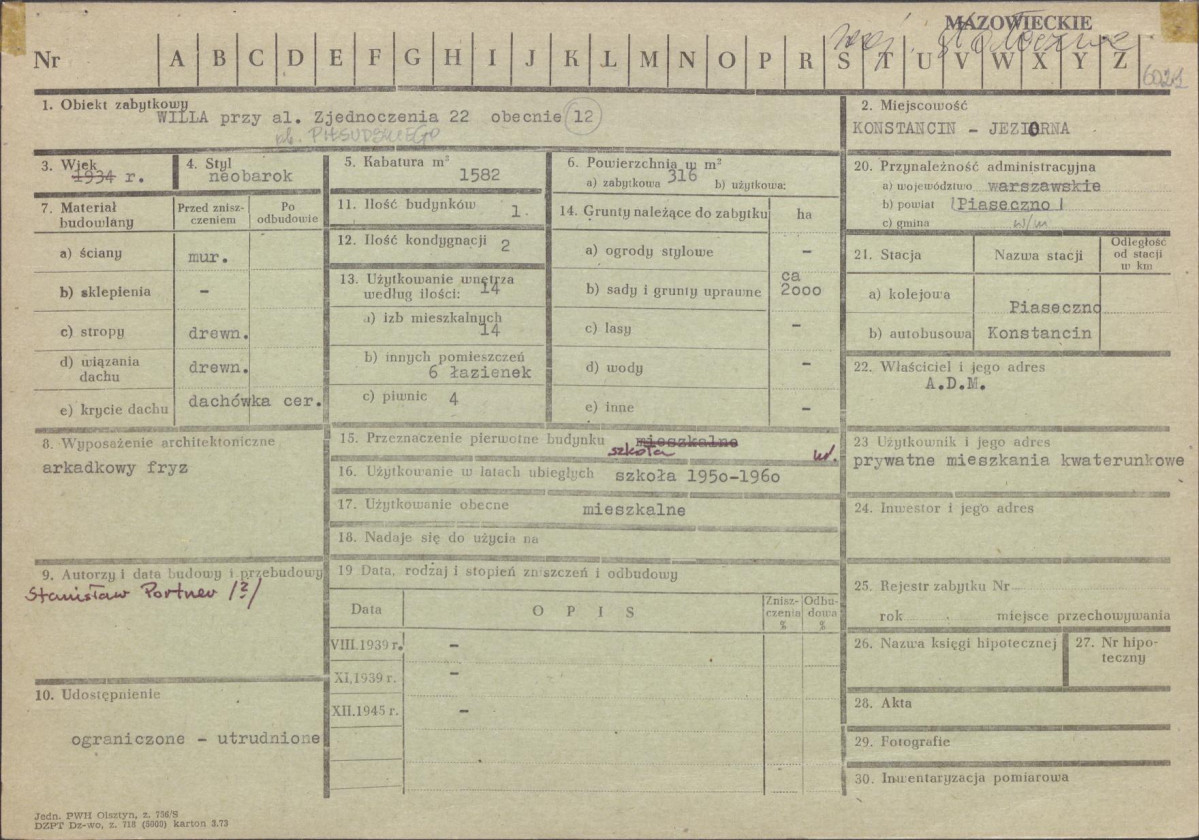 MAZOWIECKIE
woj. stołeczne
Nr A B C D E F G H I J K Ł M N O P R S T U V W X Y Z
6021
1. Obiekt zabytkowy
WILLA przy al. Zjednoczenia 22 obecnie 12
ob. PIŁSUDSKIEGO
2. Miejscowość
KONSTANCIN - JEZIORNA
3. Wiek
1934 r.
4. Styl
neobarok
5. Kabatura m³
1582
6. Powierzchnia w m²
a) zabytkowa 316 b) użytkowa:
20. Przynależność administracyjna
a) województwo warszawskie
b) powiat Piaseczno
c) gmina w/m
7. Materiał budowlany
Przed znisz-
czeniem
Po
odbudowie
a) ściany mur.
b) sklepienia -
c) stropy drewn.
d) wiązania
dachu drewn.
e) krycie dachu dachówka cer.
11. Ilość budynków 1.
12. Ilość kondygnacji 2
13. Użytkowanie wnętrza
według ilości: 14
a) izb mieszkalnych
14
b) innych pomieszczeń
6 łazienek
c) piwnic 4
14. Grunty należące do zabytku ha
a) ogrody stylowe -
b) sady i grunty uprawne ca
2000
c) lasy -
d) wody -
e) inne -
21. Stacja Nazwa stacji Odległość
od stacji
w km
a) kolejowa Piaseczno
b) autobusowa Konstancin
22. Właściciel i jego adres
A.D.M.
8. Wyposażenie architektoniczne
arkadkowy fryz
15. Przeznaczenie pierwotne budynku mieszkalne
szkoła
16. Użytkowanie w latach ubiegłych szkoła 1950-1960
17. Użytkowanie obecne mieszkalne
18. Nadaje się do użycia na
23 Użytkownik i jego adres
prywatne mieszkania kwaterunkowe
24. Inwestor i jego adres
9. Autorzy i data budowy i przebudowy
Stanisław Portner /?/
19 Data, rodzaj i stopień zniszczeń i odbudowy
Data OPIS Znisz-
czenia
% Odbu-
dowa
%
VIII.1939 r. -
XI.1939 r. -
XII.1945 r. -
25. Rejestr zabytku Nr
rok miejsce przechowywania
26. Nazwa księgi hipotecznej
27. Nr hipo-
teczny
10. Udostępnienie
ograniczone - utrudnione
28. Akta
29. Fotografie
30. Inwentaryzacja pomiarowa
Jedn. PWH Olsztyn, z. 756/S
DZPT Dz-wo, z. 718 (5000) karton 3.73